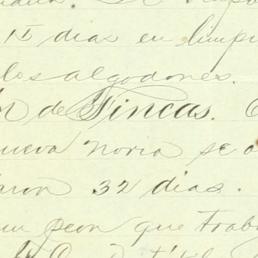 15 dias en limpi
los algodones.
de Fincas.
nueva noria se
aron 32 dias.
un peon que traba